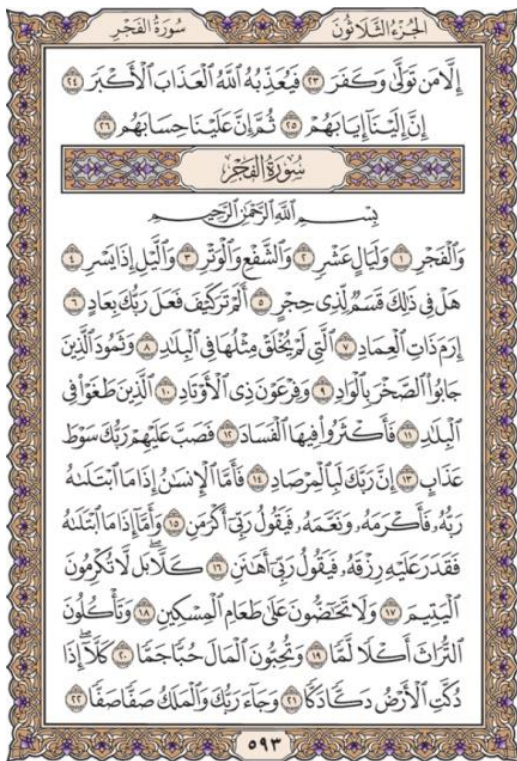 سُورَةُ الفَجْرِ
الجُزْءُ الثَّلَاثُونَ
إِلَّا مَن تَوَلَّىٰ وَكَفَرَ ٢٣ فَيُعَذِّبُهُ اللَّهُ الْعَذَابَ الْأَكْبَرَ ٢٤
إِنَّ إِلَيْنَا إِيَابَهُمْ ٢٥ ثُمَّ إِنَّ عَلَيْنَا حِسَابَهُم ٢٦
سُورَةُ الفَجْرِ
بِسْمِ اللَّهِ الرَّحْمَٰنِ الرَّحِيمِ
وَالْفَجْرِ ١ وَلَيَالٍ عَشْرٍ ٢ وَالشَّفْعِ وَالْوَتْرِ ٣ وَاللَّيْلِ إِذَا يَسْرِ ٤
هَلْ فِي ذَٰلِكَ قَسَمٌ لِّذِي حِجْرٍ ٥ أَلَمْ تَرَ كَيْفَ فَعَلَ رَبُّكَ بِعَادٍ ٦
إِرَمَ ذَاتِ الْعِمَادِ ٧ الَّتِي لَمْ يُخْلَقْ مِثْلُهَا فِي الْبِلَٰدِ ٨ وَثَمُودَ الَّذِينَ
جَابُوا الصَّخْرَ بِالْوَادِ ٩ وَفِرْعَوْنَ ذِي الْأَوْتَادِ ١٠ الَّذِينَ طَغَوْا فِي
الْبِلَٰدِ ١١ فَأَكْثَرُوا فِيهَا الْفَسَادَ ١٢ فَصَبَّ عَلَيْهِمْ رَبُّكَ سَوْطَ
عَذَابٍ ١٣ إِنَّ رَبَّكَ لَبِالْمِرْصَادِ ١٤ فَأَمَّا الْإِنسَٰنُ إِذَا مَا ابْتَلَىٰهُ
رَبُّهُۥ فَأَكْرَمَهُۥ وَنَعَّمَهُۥ فَيَقُولُ رَبِّي أَكْرَمَنِ ١٥ وَأَمَّا إِذَا مَا ابْتَلَىٰهُ
فَقَدَرَ عَلَيْهِ رِزْقَهُۥ فَيَقُولُ رَبِّي أَهَٰنَنِ ١٦ كَلَّا ۖ بَل لَّا تُكْرِمُونَ
الْيَتِيمَ ١٧ وَلَا تَحَٰٓضُّونَ عَلَىٰ طَعَامِ الْمِسْكِينِ ١٨ وَتَأْكُلُونَ
التُّرَاثَ أَكْلًا لَّمًّا ١٩ وَتُحِبُّونَ الْمَالَ حُبًّا جَمًّا ٢٠ كَلَّا ۖ إِذَا
دُكَّتِ الْأَرْضُ دَكًّا دَكًّا ٢١ وَجَاءَ رَبُّكَ وَالْمَلَكُ صَفًّا صَفًّا ٢٢
٥٩٣